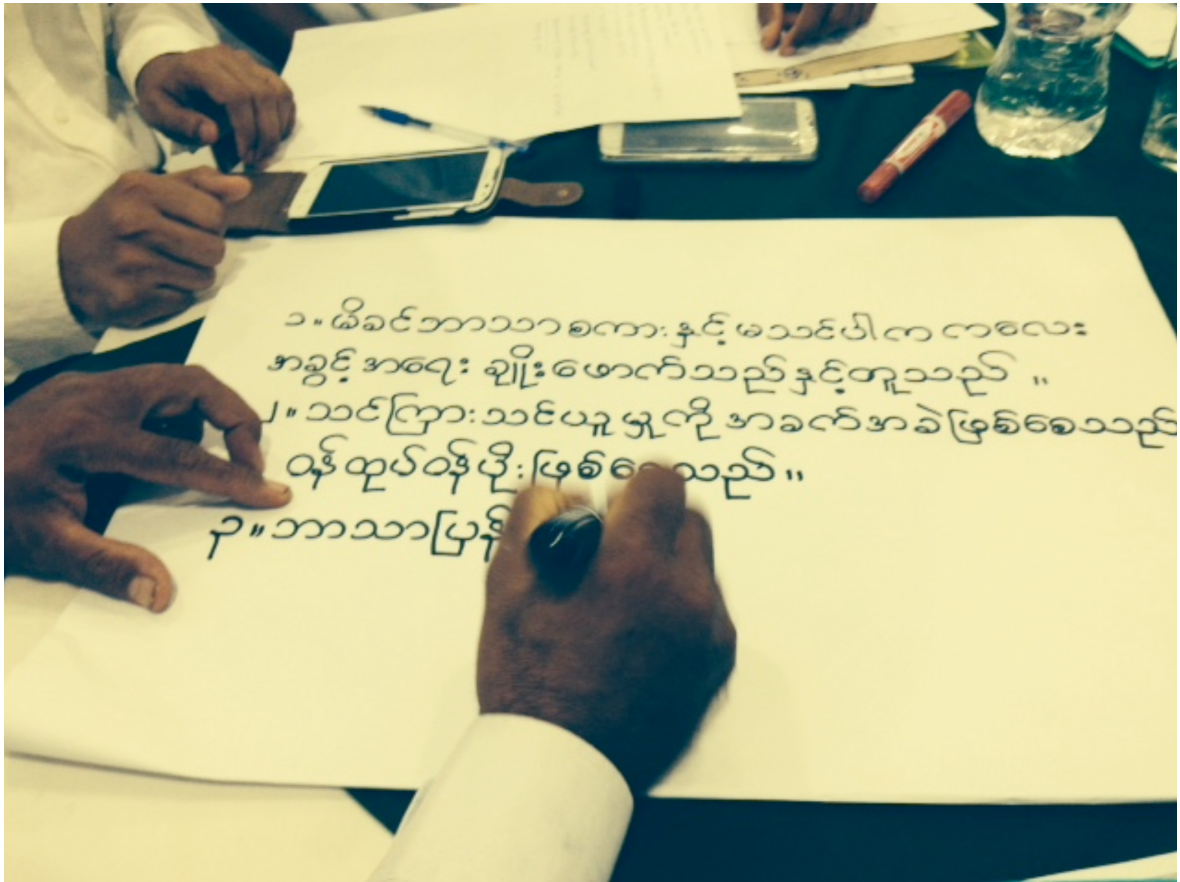 ၁။ မိခင်ဘာသာစကားနှင့် မသင်ပါက ကလေး
အခွင့်အရေး ချိုးဖောက်သည်နှင့်တူသည်။
၂။ သင်ကြားသင်ယူမှုကို အခက်အခဲဖြစ်စေသည်
ဝန်ထုပ်ဝန်ပိုးဖြစ်စေသည်။
၃။ ဘာသာပြန်